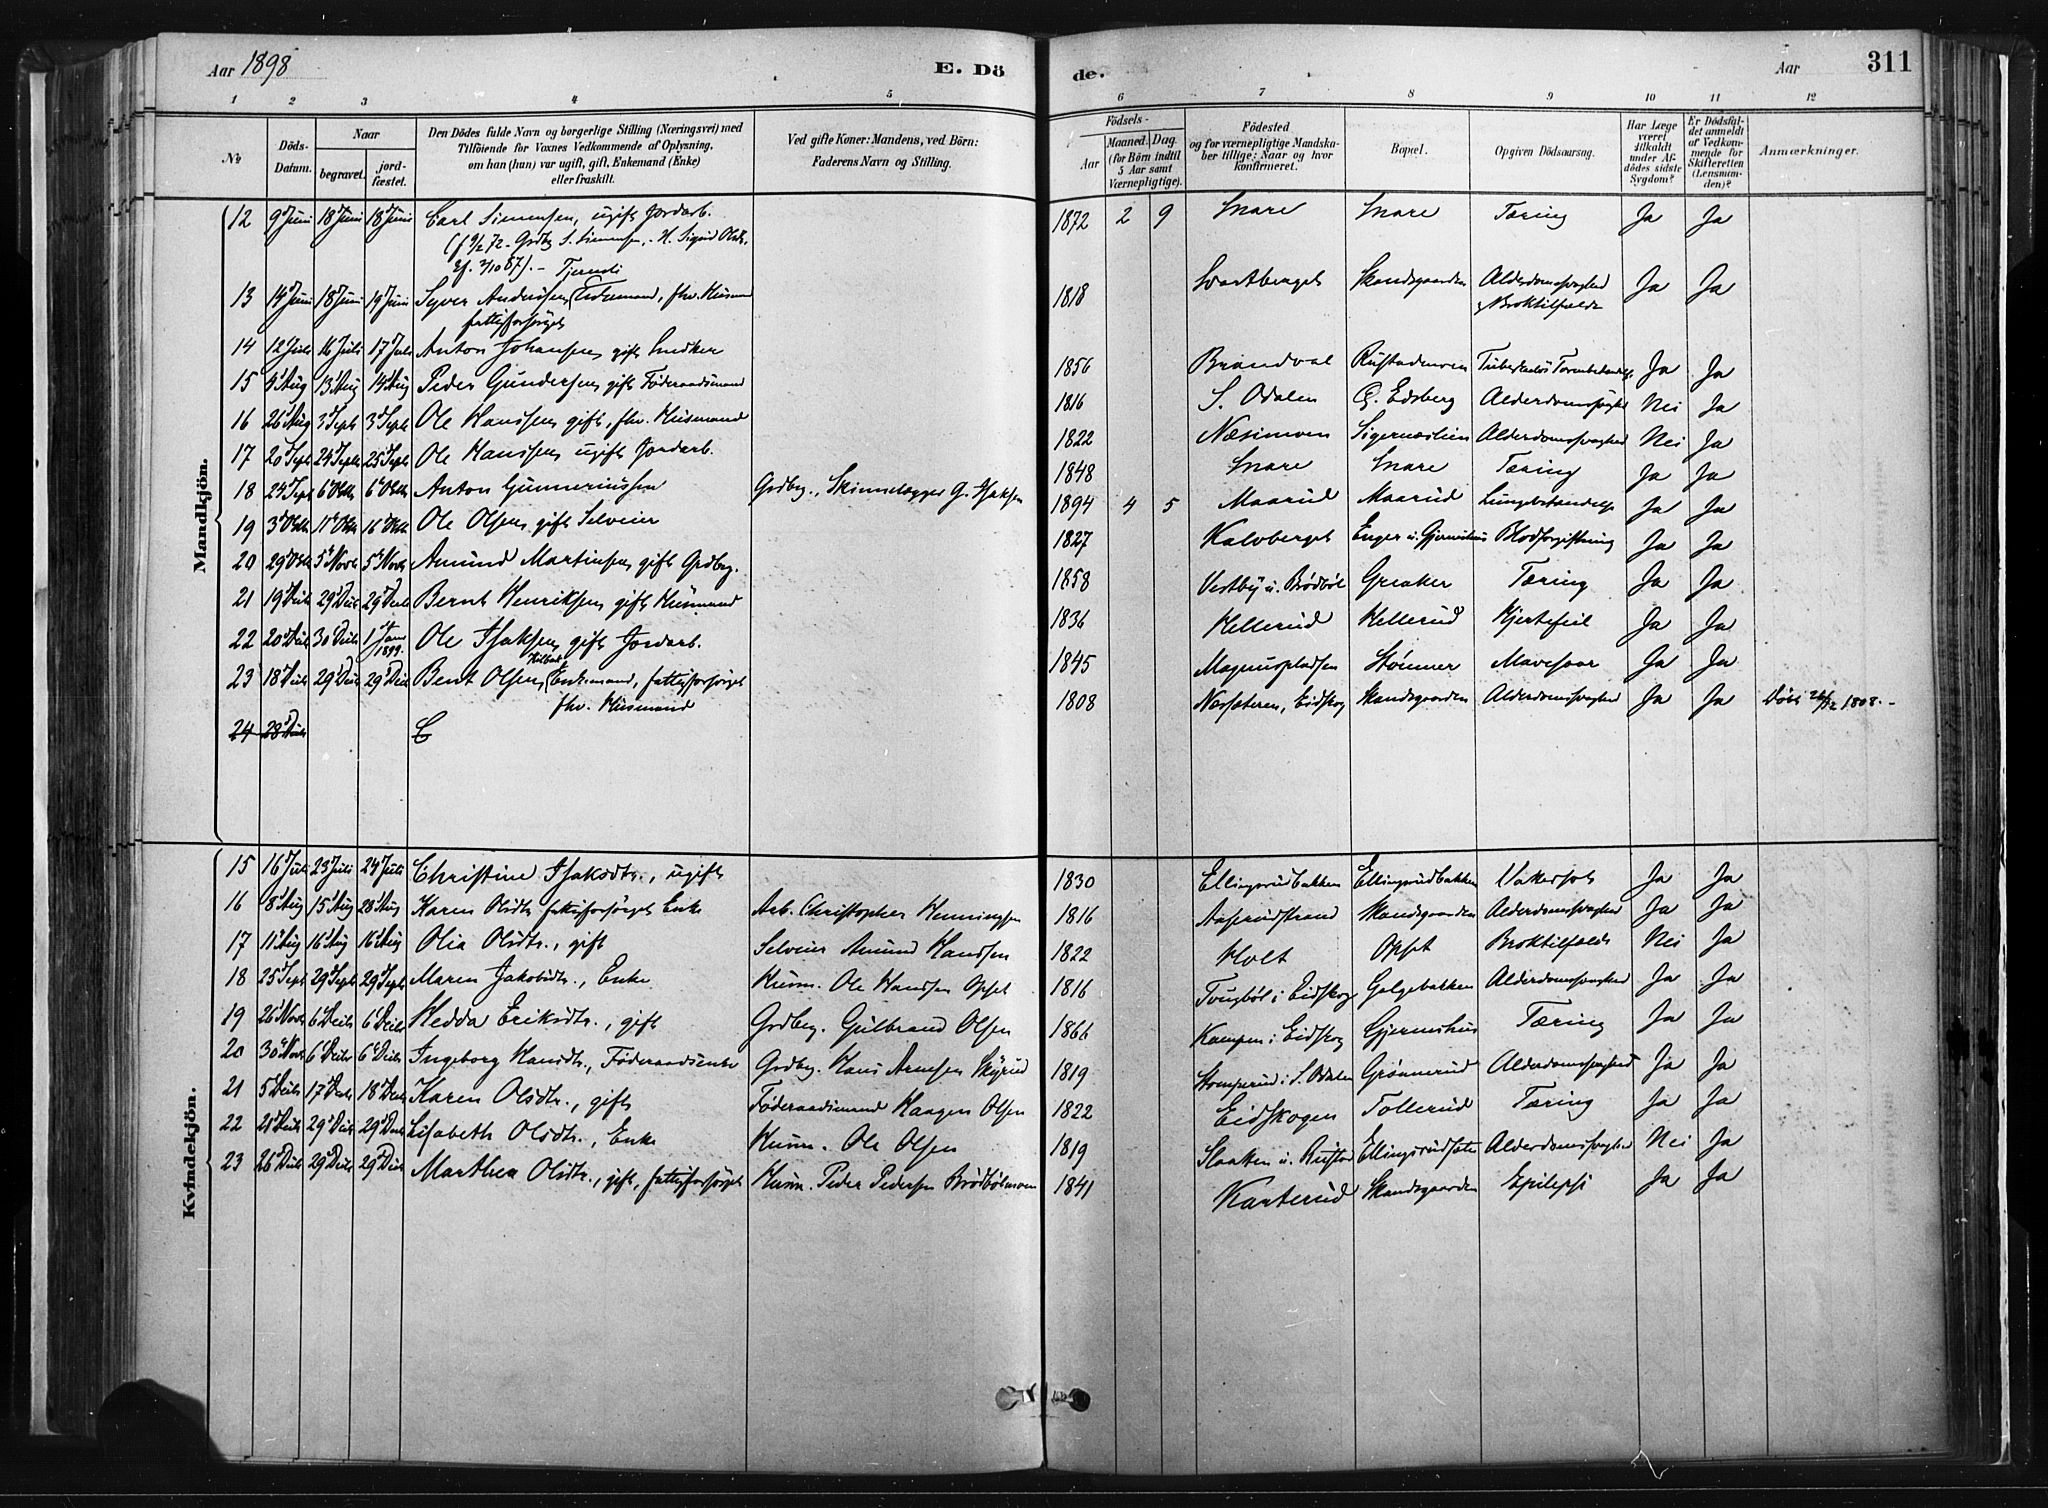 Aar 1898
E. Dö
de.
Aar
311
1 2 3 4 5 6 7 8 9 10 11 12
No
Döds-Datum.
Naar
begravet.
jord-fæstet.
Den Dödes fulde Navn og borgerlige Stilling (Næringsvei) med
Tilföiende for Voxnes Vedkommende af Oplysning,
om han (hun) var ugift, gift, Enkemand (Enke)
eller fraskilt.
Ved gifte Koner: Mandens, ved Börn:
Faderens Navn og Stilling.
Födsels-
Aar
Maaned. Dag.
(for Börn indtil
5 Aar samt
Værnepligtige).
Födested
og for værnepligtige Mandska-
ber tillige: Naar og hvor
konfirmeret.
Bopæl.
Opgiven Dödsaarsag.
Har Læge
været
tilkaldt
under Af-
dödes sidste
Sygdom?
Er Dödsfal-
det anmeldt
af Vedkom-
mende for
Skifteretten
(Lensman-
den)?
Anmærkninger.
Mandkjön.
12 9 Juni 18 Juni 18 Juni Carl Simensen, ugift Jordarb. 1872 2 9 Snare Snare Tæring Ja Ja
(f 9/2 72 - Grdbr S. Simensen, - H. Sigrid Olsdr,
13 14 Juni 18 Juni 19 Juni Syver Andersen, Enkemand, fhv. Husmand 1818 Svartberget Skandsgaarden Alderdomssvaghed Ja Ja
fattigforsörget
Broktilfælde
14 12 Juli 16 Juli 17 Juli Anton Johansen gift Snedker 1856 Brandval Rustadmoen Ja Ja
15 13 Aug 14 Aug Peder Gundersen gift Föderaadsmand 1816 S. Odalen Edsberg Alderdomssvaghed Nei Ja
16 26 Aug 3 Sept 3 Sept Ole Hanssen gift, fhv. Husmand 1822 Næsimoen Alderdomssvaghed Nei Ja
17 20 Sept 24 Sept 25 Sept Ole Hanssen ugift Jordarb. 1848 Snare Snare Tæring Ja Ja
18 24 Sept 6 Oktb 6 Oktb Anton Gunneriussen Grdbr., Skinnelægger G. Isaksen 1894 4 5 Maarud Maarud Lungebetændelse Ja Ja
19 3 Oktb 11 Oktb 16 Oktb Ole Olsen gift Selveier 1827 Kalvberget Enger u. Gjermshus Blodforgiftning Ja Ja
20 29 Oktb 5 Novb 5 Novb Amund Martinsen gift Grdbr. 1858 Vestby u. Brødbøl Greaker Tæring Ja Ja
21 19 Decb 29 Decb 29 Decb Bernt Henriksen gift Husmand 1836 Hellerud Hellerud Hjertefeil Ja Ja
22 20 Decb 30 Decb 1 Janr 1899. Ole Isaksen gift Jordarb. 1845 Magnuspladsen Stømner Mavesaar Ja Ja
23 18 Decb 29 Decb 29 Decb Bernt Olsen, Enkemand, fattigforsörget 1808 Næssæteren, Eidskog Skandsgaarden Alderdomssvaghed Ja Ja Döbt 26/12 1808. -
fhv. Husmand
24 28 Decb C
Kvindekjön.
15 16 Juli 23 Juli 24 Juli Christine Isaksdtr., ugift 1830 Ellingsrudbakken Ellingsrudbakken Vattersot Ja Ja
16 8 Aug 15 Aug 28 Aug Karen Olsdtr fattigforsörget Enke Arb. Christopher Henningsen 1816 Aaserudstrand Skandsgaarden Alderdomssvaghed Ja Ja
17 11 Aug 16 Aug 16 Aug Olia Olsdtr., gift Selveier Amund Hanssen 1822 Holt Opset Broktilfælde Nei Ja
18 25 Sept 29 Sept 29 Sept Maren Jakobsdtr., Enke Husm. Ole Hanssen Opset 1816 Tougbøl i Eidskog Galgebakken Alderdomssvaghed Ja Ja
19 26 Novb 6 Decb 6 Decb Hedda Eriksdtr., gift Grdbr. Gulbrand Olsen 1866 Kampen i Eidskog Gjermshus Tæring Ja Ja
20 30 Novb 6 Decbr 6 Decbr Ingeborg Hansdtr., Föderaadsenke Grdbr. Hans Arnesen Skyrud 1819 Stomperud i S. Odalen Grønnerud Alderdomssvaghed Ja Ja
21 5 Decb 17 Decb 18 Decb Karen Olsdtr., gift Föderaadsmand Haagen Olsen 1822 Eidskogen Tollerud Tæring Ja Ja
22 29 Decb 29 Decb Lisabeth Olsdtr., Enke Husm. Ole Olsen 1819 Slaatten u. Rustad Ellingsrudsæter Alderdomssvaghed Nei Ja
23 26 Decb 29 Decb 29 Decb Marthea Olsdtr., gift, fattigforsörget Husm. Peder Pedersen Brödbölmoen 1841 Karterud Skandsgaarden Epilepsi Ja Ja